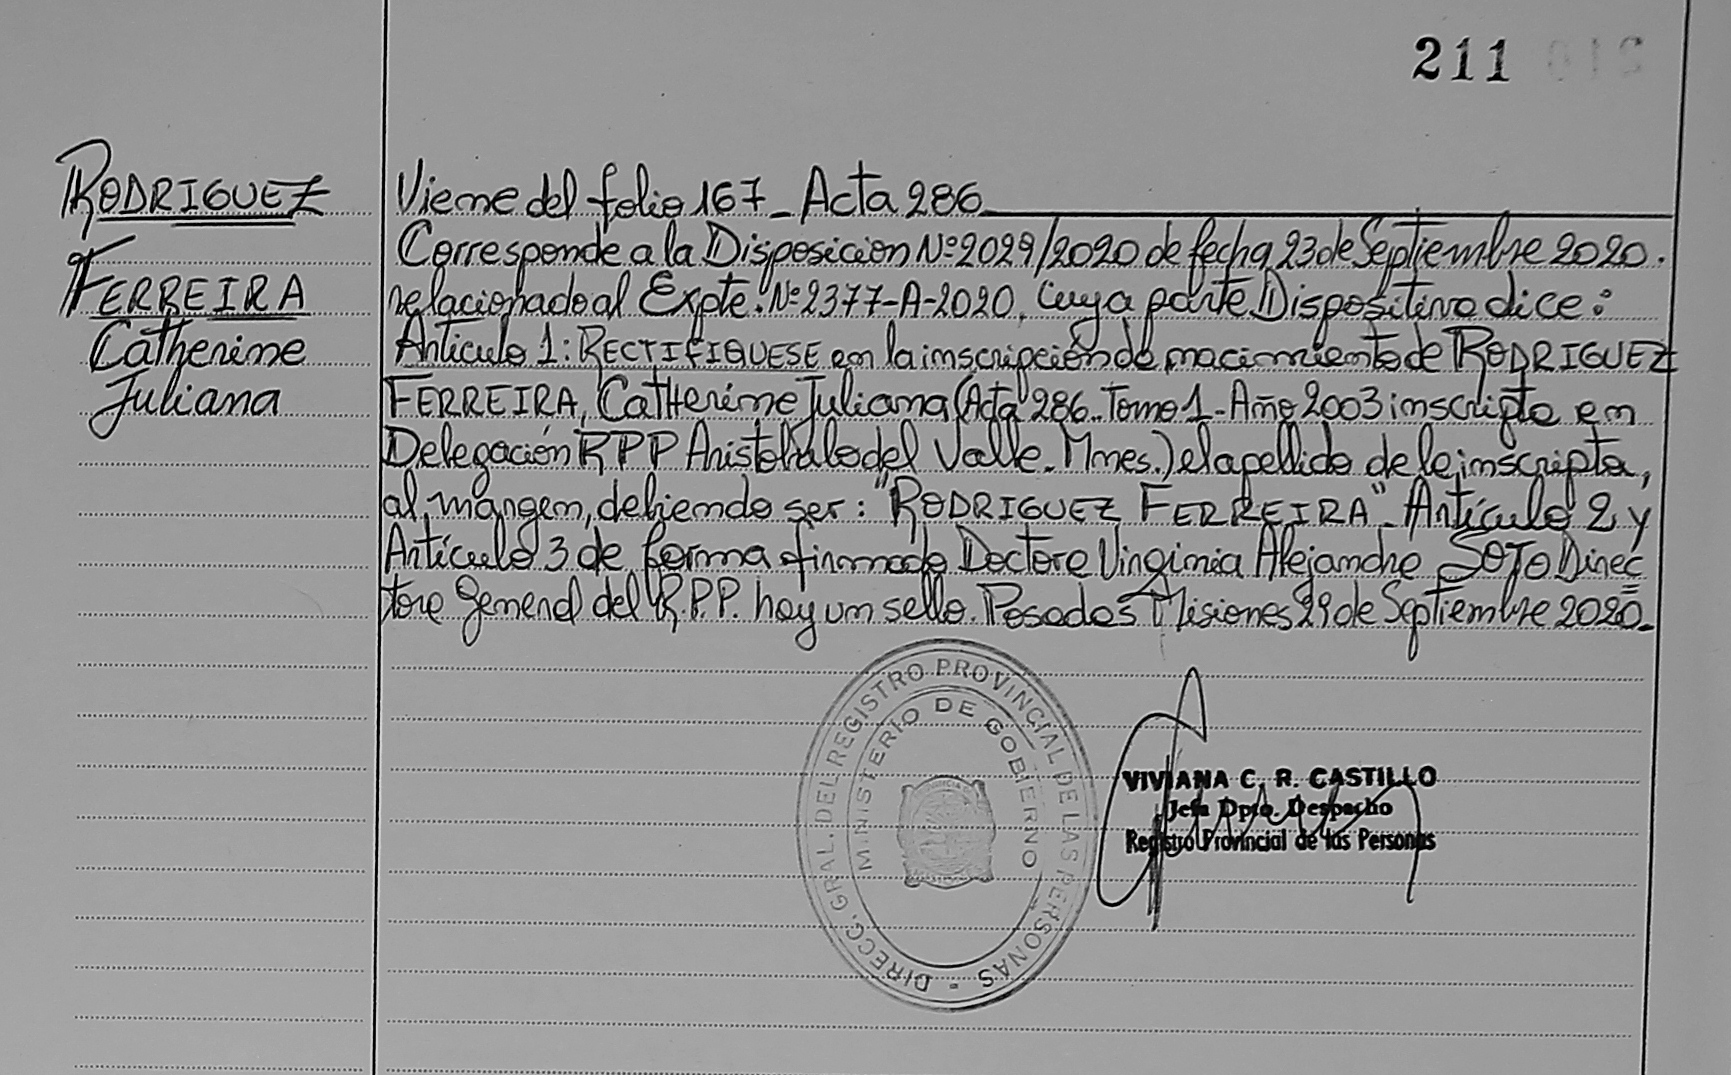 211
RODRIGUEZ
FERREIRA
Catherine
Juliana
Viene del folio 167_ Acta 286
Corresponde a la Disposicion Nº 2029/2020 de fecha 23 de Septiembre 2020.
relacionado al Expte. Nº 2377-A-2020, cuya parte Dispositiva dice:
Artículo 1: RECTIFIQUESE en la inscripción de nacimiento de RODRIGUEZ
FERREIRA, Catherine Juliana (Acta 286.. Tomo 1 - Año 2003 inscripta en
Delegación RPP Aristóbulo del Valle. Mnes.) el apellido de la inscripta,
al margen, debiendo ser: "RODRIGUEZ FERREIRA"_ Artículo 2 y
Artículo 3 de forma firmado Doctora Virginia Alejandra SOTO Direc
tora General del R.P.P. hay un sello. Posadas Misiones 29 de Septiembre 2020_
DIRECC. GRAL. DEL REGISTRO PROVINCIAL DE LAS PERSONAS
MINISTERIO DE GOBIERNO
VIVIANA C. R. CASTILLO
Jefa Dpto. Despacho
Registro Provincial de las Personas